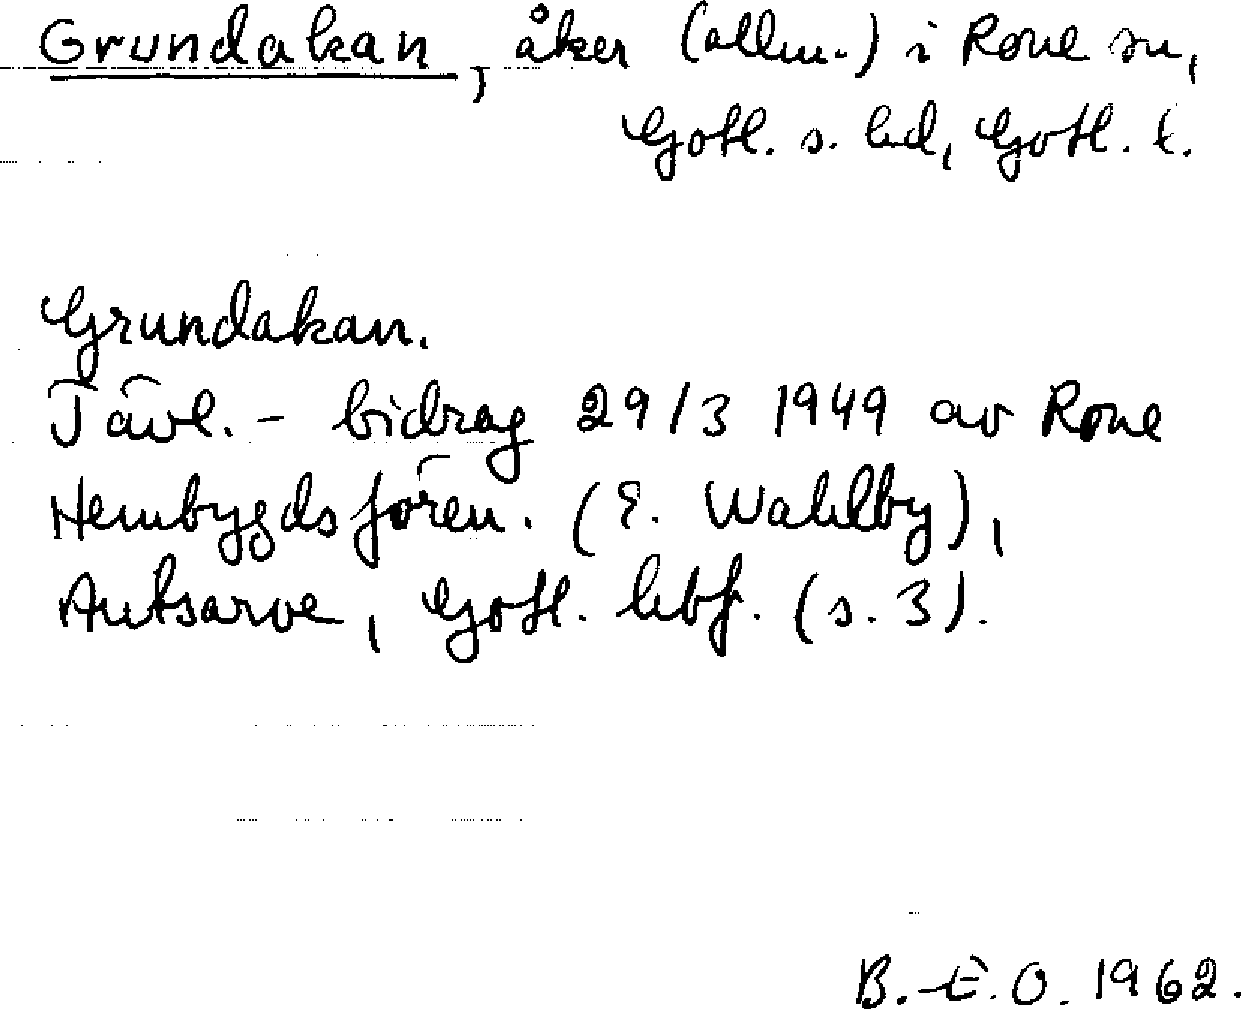 Grundakan, åker (allm.) i Rone sn,
Gotl. s. hd, Gotl. l.
Grundakan.
Tävl.- bidrag 29/3 1949 av Rone
Hembygdsfören. (E. Wahlby),
Autsarve, Gotl. hbf. (s. 3).
B.-E.O. 1962.